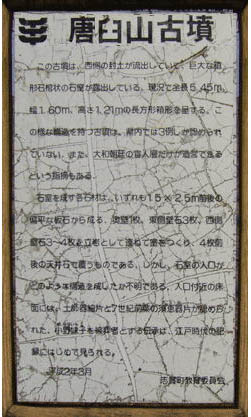 唐臼山古墳
この古墳は、西側の封土が流出していて、巨大な箱
形石棺状の石室が露出している。現況で全長5.45m、
幅1.60m、高さ1.21mの長方形箱形を呈する。こ
の様な構造を持つ古墳は、県内では3例しか認められ
ていない。また、大和朝廷の官人層だけが造営できる
という指摘もある。
石室を成す各石材は、いずれも1.5×2.5m前後の
偏平な板石から成る。奥壁1枚、東側壁石3枚、西側
壁石3〜4枚を立巻として連ねて室をつくり、4枚前
後の天井石で覆うものである。しかし、石室の入口が
どのような構造を成したか不明である。入口付近の床
面には、土師器細片と7世紀前葉の須恵器片が認めら
れた。小野妹子を被葬者とする伝承は、江戸時代の記
録にはじめて見られる。
平成2年3月
志賀町教育委員会